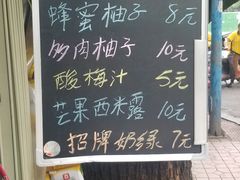 蜂蜜柚子 8元
多肉柚子 10元
酸梅汁 5元
芒果西米露 10元
招牌奶绿 7元